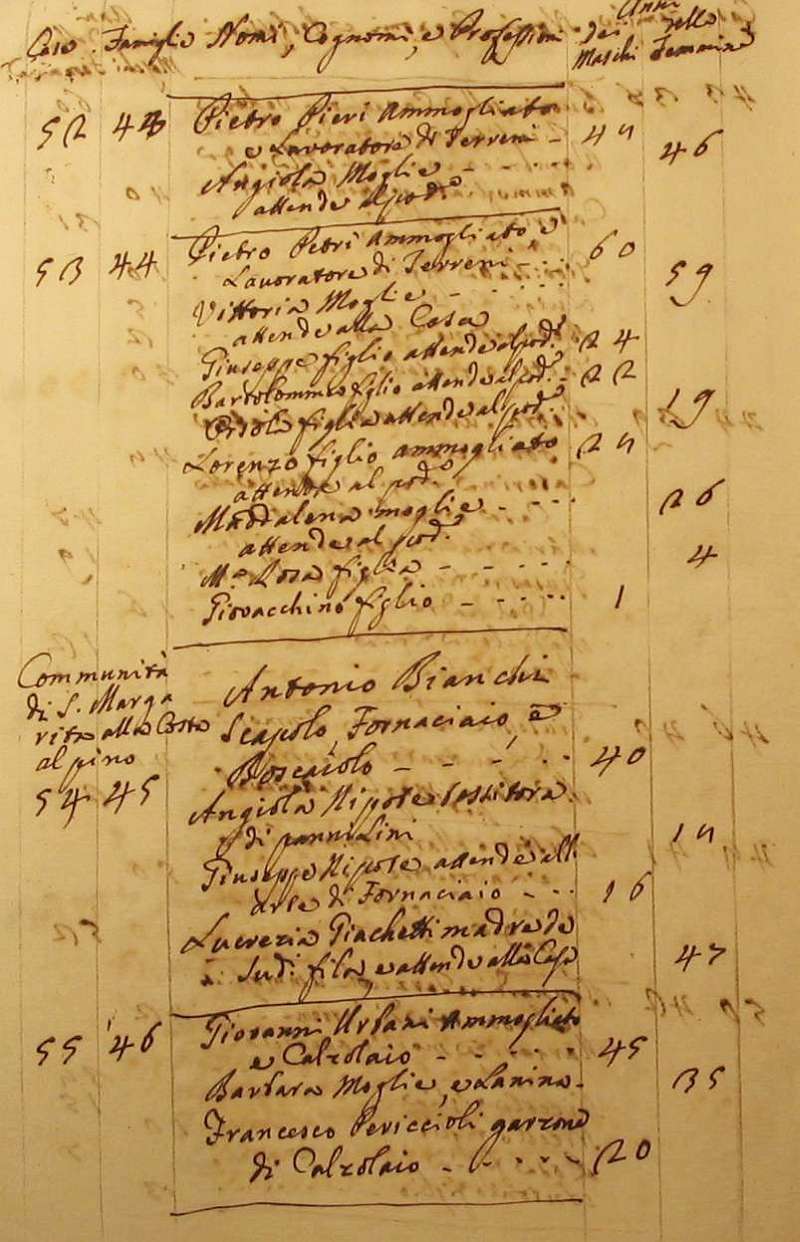 Anni
Case Famiglie Nomi, Cognomi, e Professioni dei Maschi delle Femmine
52 43 Pietro Pieri Ammogliato
e Lavoratore di Terreni - 45
Angiola Moglie - - - 46
attende al pod.e
53 44 Pietro Petri Ammogliato e
Lavoratore di Terreni - 60
Vittoria Moglie - - - 59
attende alla Casa
Giuseppe figlio attende al pod.e 24
Bartolommeo figlio attende al pod.e - 22
Orsola figlia attende al pod.e 19
Lorenzo figlio ammogliato 25
attende al pod.e
Maddalena moglie - - - 26
attende al pod.e
M.a Rosa figlia - - - - 4
Giovacchino figlio - - - - 1
Communità
di S. Marga
rita alla Costa
al pino
54 45 Antonio Bianchi
Scapolo, Fornaciaio, e
Boscaiolo - - - - 40
Angiola Nipote tessitora
di pannilini 15
Giuseppe Nipote attende all
arte di Fornaciaio - - - 16
Lucrezia Giachetti madre de
Sud.i fila, e attende alla Casa 47
55 46 Giovanni Urbani Ammogliato
e Calzolaio - - - - 45
Barbara Moglie, e Lanina - 35
Francesco Periccioli garzone
di Calzolaio - - - - 20